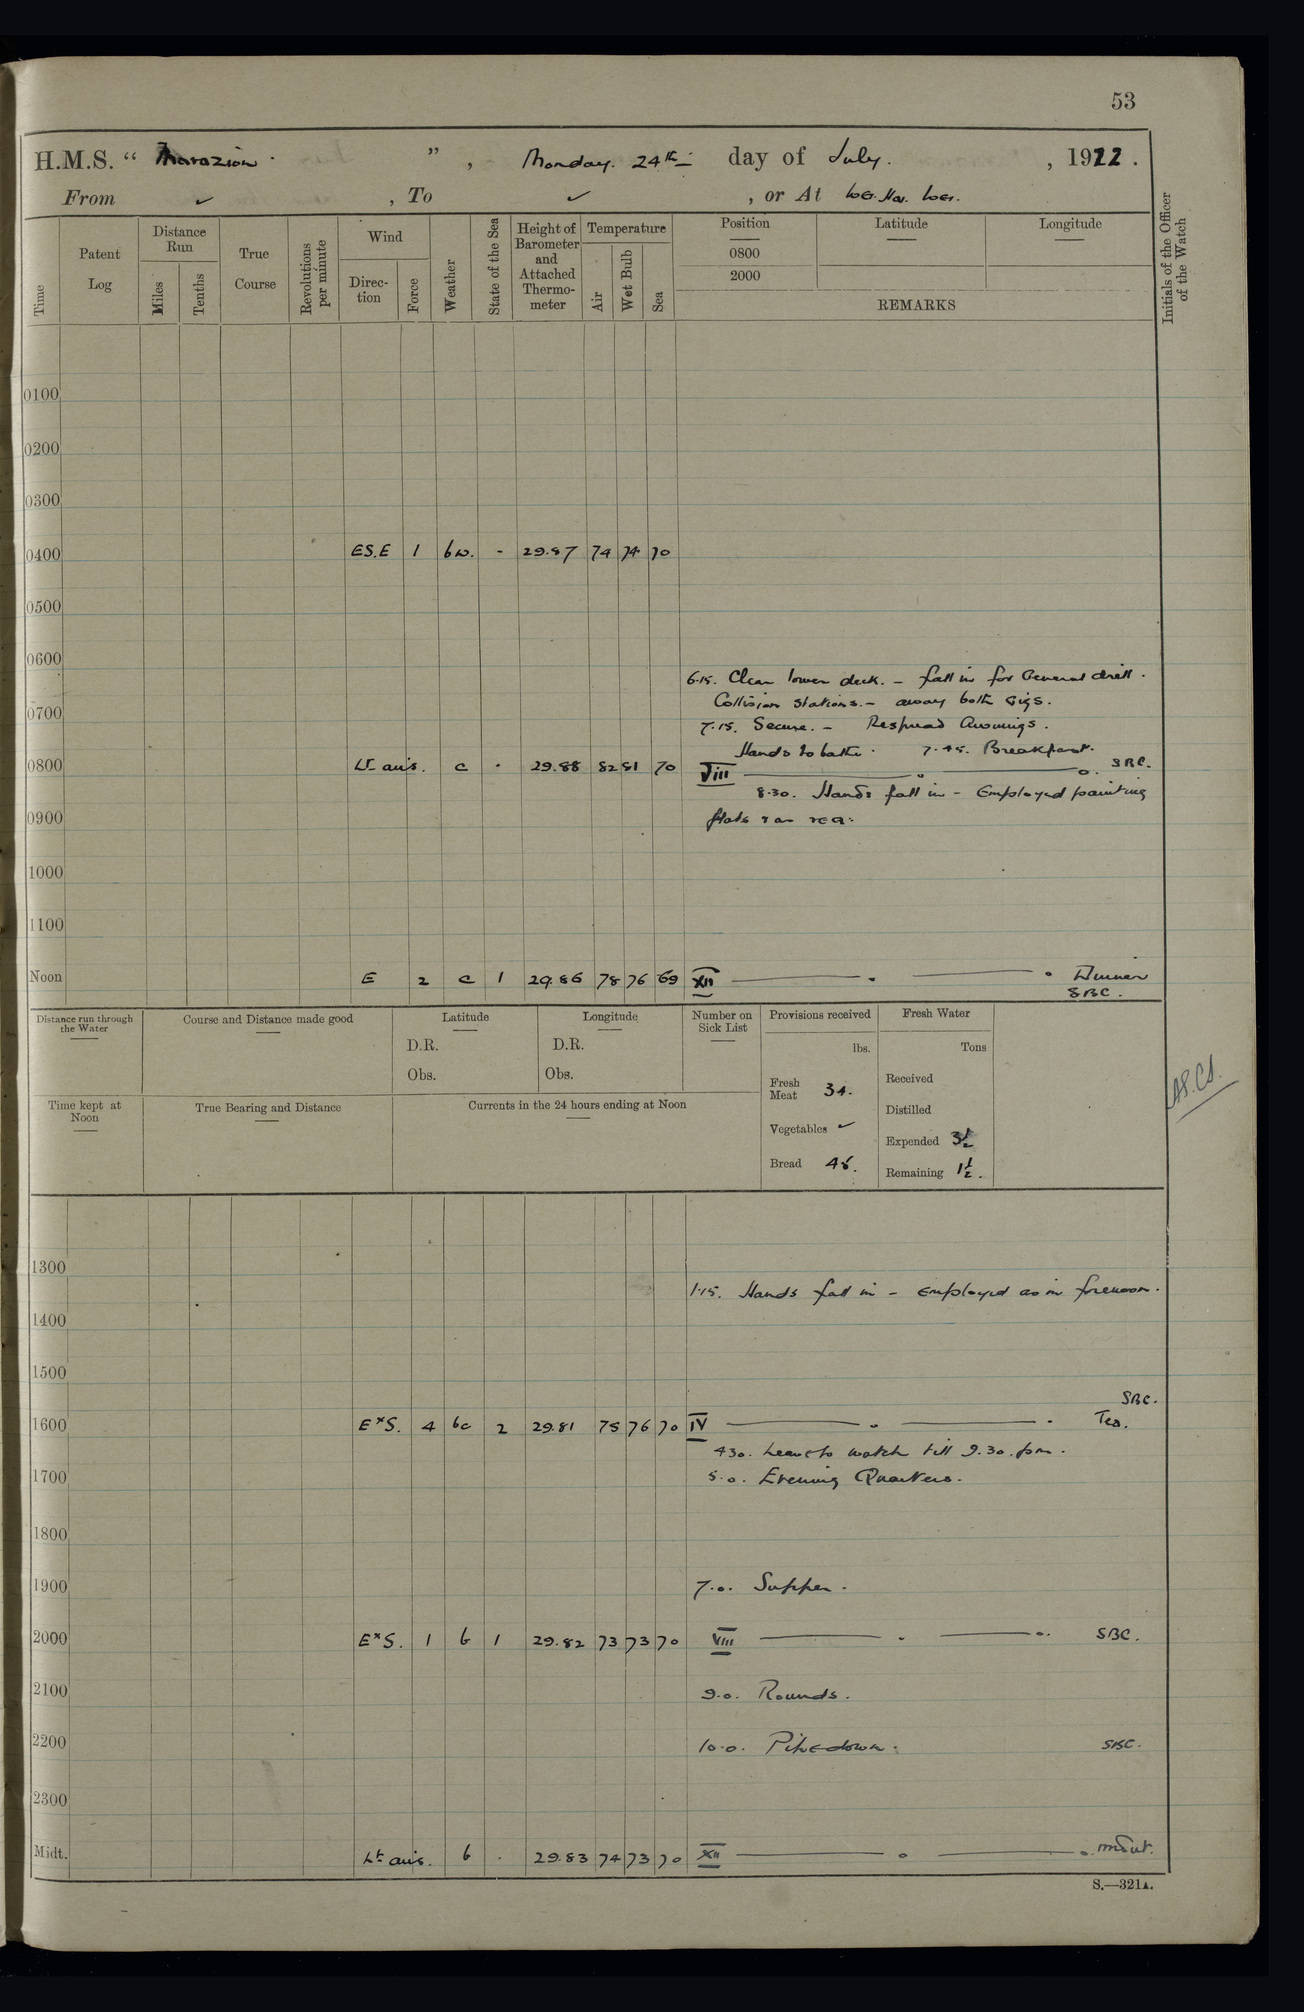 53
H.M.S. “ Marazion. ” , Monday. 24th day of July. , 1922.
From ✓ , To ✓ , or At Wei. Hai. Wei.
Time
Patent Log
Distance Run
Miles
Tenths
True Course
Revolutions per minute
Wind
Direction
Force
Weather
State of the Sea
Height of Barometer and Attached Thermometer
Temperature
Air
Wet Bulb
Sea
Position
0800
2000
Latitude
Longitude
REMARKS
Initials of the Officer of the Watch
0100
0200
0300
0400 ES.E 1 bw. - 29.87 74 74 70
0500
0600
6.15. Clear lower deck. – fall in for General drill.
Collision Stations. – away both Gigs.
0700
7.15. Secure. – Respread Awnings.
Hands to bathe. 7.45. Breakfast.
0800 Lt airs. c - 29.88 82 81 70 VIII SBC.
8.30. Hands fall in – Employed painting
0900 flats & as req:
1000
1100
Noon E 2 c 1 29.86 78 76 69 XII Dinner
SBC.
Distance run through the Water
Course and Distance made good
Latitude
D.R.
Obs.
Longitude
D.R.
Obs.
Number on Sick List
Provisions received
lbs.
Fresh Meat 34.
Vegetables ✓
Bread 45.
Fresh Water
Tons
Received
Distilled
Expended 3½
Remaining 1½.
Time kept at Noon
True Bearing and Distance
Currents in the 24 hours ending at Noon
1300
1.15. Hands fall in – Employed as in forenoon.
1400
1500
SBC.
1600 ExS. 4 bc 2 29.81 75 76 70 IV Tea.
4.30. Leave to watch till 9.30. p.m.
1700 5.0. Evening Quarters.
1800
1900 7.0. Supper.
2000 ExS. 1 b 1 29.82 73 73 70 VIII SBC.
2100 9.0. Rounds.
2200 10.0. Pipe down. SBC.
2300
Midt. Lt airs. b . 29.83 74 73 70 XII
S.—321A.